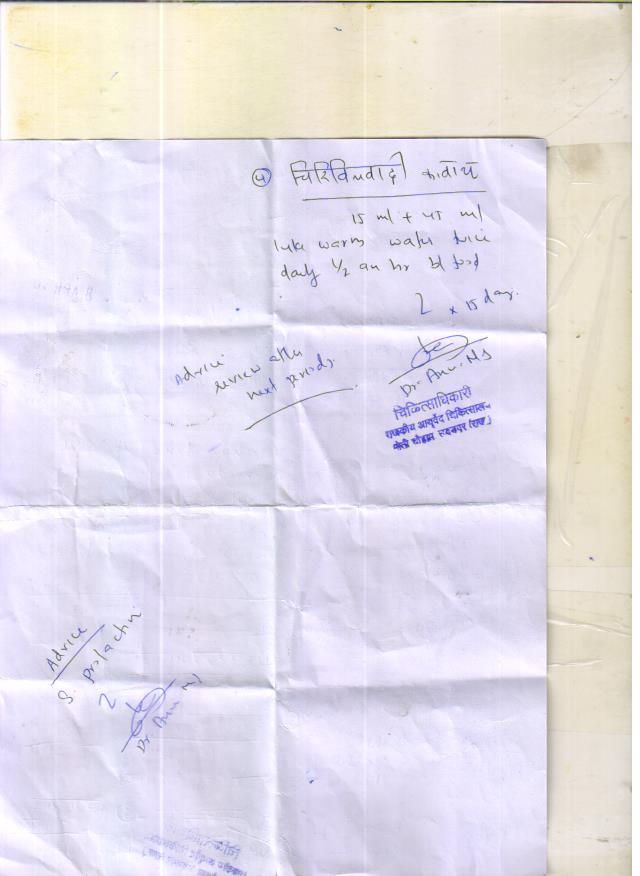 ④ चिरिविल्वादी क्वाथ
15 ml + 45 ml
luke warm water twice
daily 1/2 an hr b/f food
2 x 15 day.
Advice
review after
next periods.
Dr. Anu. MS
चिकित्साधिकारी
राजकीय आयुर्वेद चिकित्सालय
उदयपुर (राज.)
Advice
S. prolactin
2
Dr. Anu MS